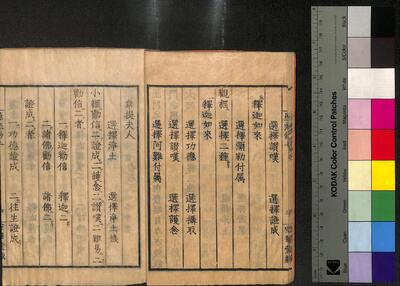 選擇讃嘆 選擇證成
釋迦如來
選擇彌勒付属
觀經 選擇二種
釋迦如來
選擇功德 選擇攝取
選擇讃嘆 選擇護念
選擇阿難付属
韋提夫人
選擇淨土 選擇淨土機
小經勸信二 證成二 護念二 讃嘆二 難易二
勸信二者
一釋迦勸信 釋迦二
二諸佛勸信 諸佛二
證成二者
一功德證成 二往生證成
KODAK Color Control Patches
Black
3/Color
White
Magenta
Red
Yellow
Green
Cyan
Blue